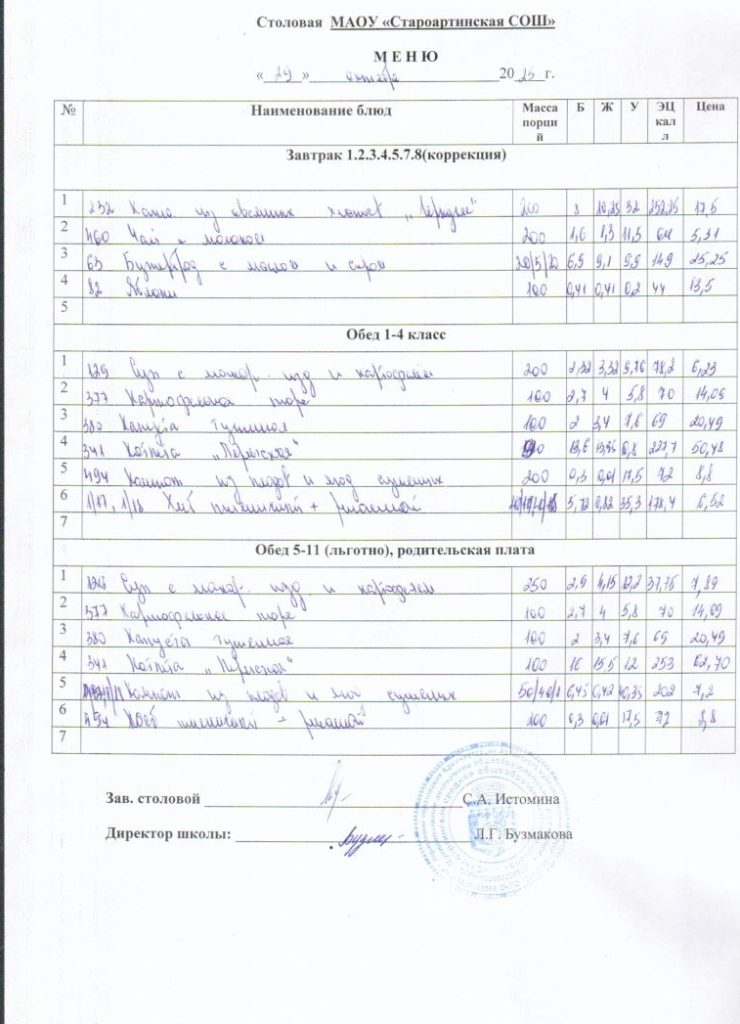 Столовая МАОУ «Староартинская СОШ»
М Е Н Ю
« 29 » октября 20 25 г.
№ Наименование блюд Масса порций Б Ж У ЭЦ калл Цена
Завтрак 1.2.3.4.5.7.8(коррекция)
1 232 Каша из овсяных хлопьев „Геркулес" 200 8 10,25 32 252,25 17,5
2 460 Чай с молоком 200 1,6 1,3 11,5 64 5,31
3 63 Бутерброд с маслом и сыром 20/5/20 6,9 9,1 9,9 149 25,25
4 82 Яблоки 100 0,41 0,41 0,2 44 13,5
5
Обед 1-4 класс
1 129 Суп с макар. изд и картофелем 200 2,32 3,32 9,76 78,2 6,23
2 377 Картофельное пюре 100 2,7 4 5,8 70 14,09
3 380 Капуста тушеная 100 2 3,4 7,6 69 20,49
4 341 Котлета „Пермская" 90 13,6 13,95 227,7 50,48
5 494 Компот из плодов и ягод сушеных 200 0,3 0,01 17,5 72 8,8
6 1/17, 1/18 Хлеб пшеничный + ржаной 0,82 35,3 178,4 6,52
7
Обед 5-11 (льготно), родительская плата
1 Суп с макар. изд и картофелем 250 2,9 4,15 12,2 7,89
2 377 Картофельное пюре 100 2,7 4 5,8 70 14,09
3 380 Капуста тушенная 100 2 3,4 7,6 69 20,49
4 341 Котлета „Пермская" 100 16 15,5 12 253 62,70
5 Компот из плодов и ягод сушеных 202 7,2
6 494 Хлеб пшеничный + ржаной 200 0,3 0,01 17,5 72 8,8
7
Зав. столовой С.А. Истомина
Директор школы: Л.Г. Бузмакова